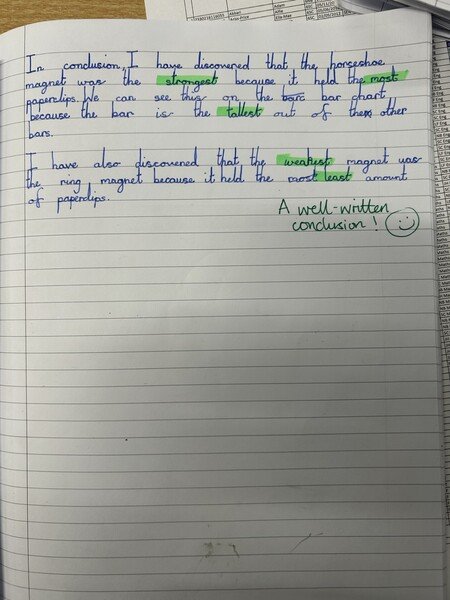 In conclusion, I have discovered that the horseshoe
magnet was the strongest because it held the most
paperclips. We can see this on the barc bar chart
because the bar is the tallest out of them other
bars.
I have also discovered that the weakest magnet was
the ring magnet because it held the most least amount
of paperclips.
A well-written
conclusion!